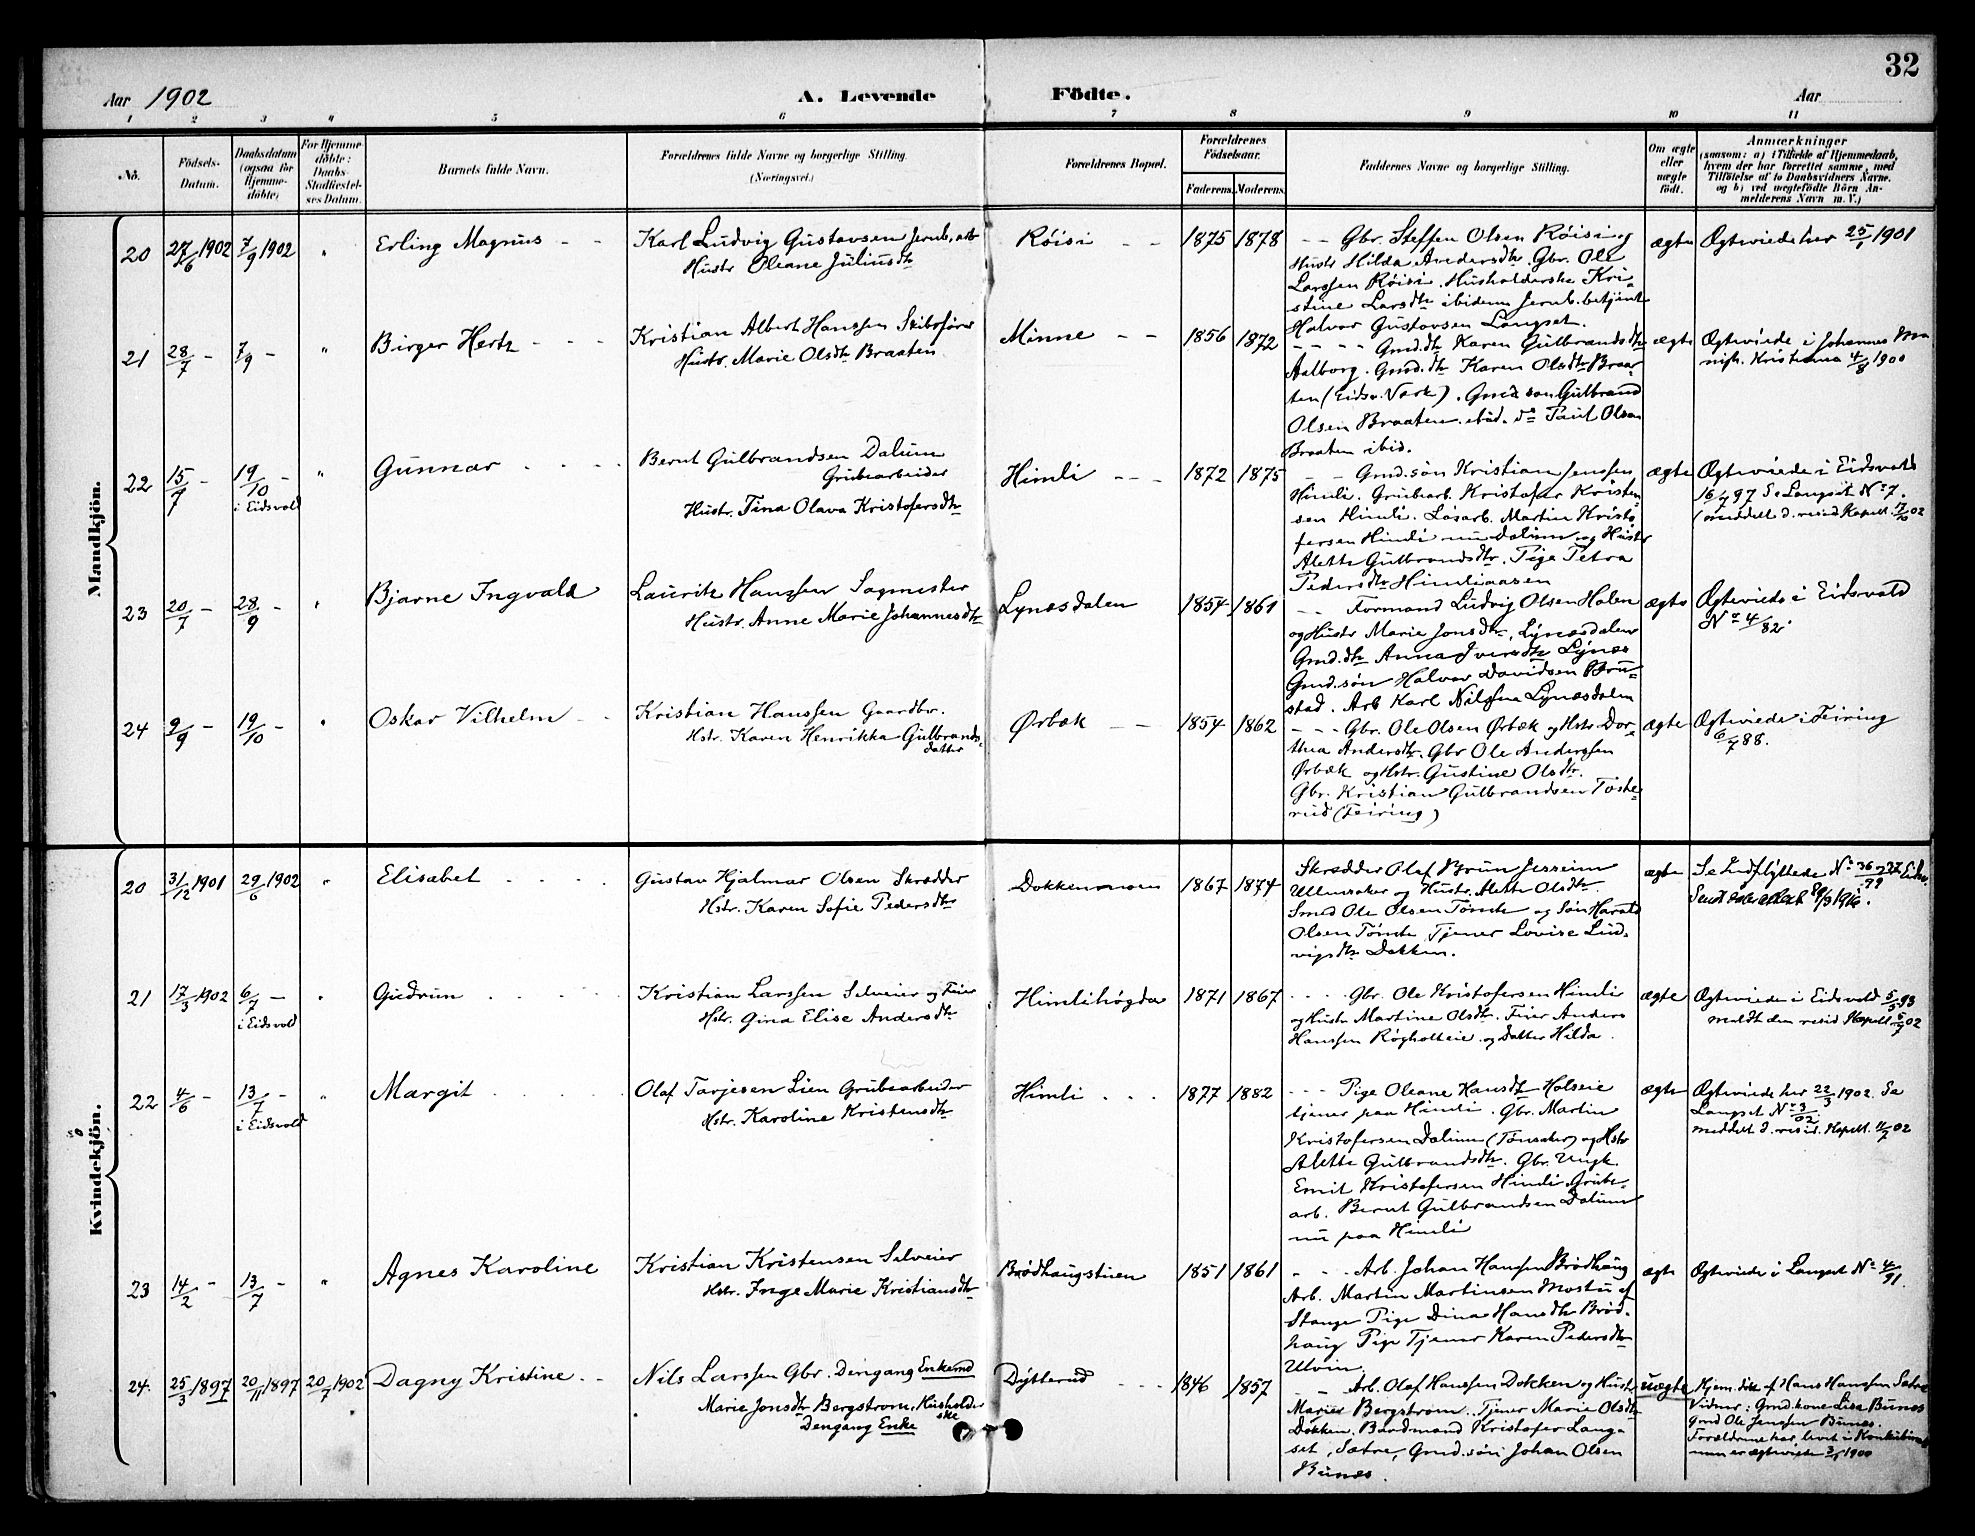 32
Aar 1902
A. Levende Födte.
Aar
1 2 3 4 5 6 7 8 9 10 11
No.
Födsels-
Datum.
Daabsdatum
(ogsaa for
Hjemme-
döbte)
For Hjemme-
döbte:
Daabs-
Stadfæstel-
ses Datum.
Barnets fulde Navn.
Forældrenes fulde Navne og borgerlige Stilling.
(Næringsvei.)
Forældrenes Bopæl.
Forældrenes
Födselsaar.
Faderens. Moderens.
Faddernes Navne og borgerlige Stilling.
Om ægte
eller
uægte
födt.
Anmærkninger
(saasom: a) i Tilfælde af Hjemmedaab,
hvem der har forrettet samme, med
Tilföielse af to Daabsvidners Navne,
og b) ved uægtefödte Börn An-
melderens Navn m. V.)
Mandkjön.
20 27/6 1902 7/9 1902 " Erling Magnus - -
Karl Ludvig Gustavsen Jernb. arb
Hustr Oleane Juliusdtr
Røisi - - 1875 1878
- - Gbr. Steffen Olsen Røisi og
Hustr Hilda Andersdtr. Gbr. Ole
Larssen Røisi. Husholderske Kri-
stine Larsdtr ibidem Jernb. betjent
Halvor Gustavsen Langset.
ægte Ægteviede her 25/1 1901
21 28/7 - 7/9 - " Birger Hertz - - -
Kristian Albert Hanssen Skibsfører
Hustr. Marie Olsdtr Braaten
Minne - - 1856 1872
- - - - Gmd.dtr Karen Gulbrandsdtr
Aalborg. Gmd.dtr Karen Olsdtr Braa-
ten (Eidsv. Værk). Gmd søn Gulbrand
Olsen Braaten. ibid. do Paul Olsen
Braaten ibid.
ægte Ægteviede i Johannes Me-
nigh. Kristiania 4/8 1900
22 15/7 - 19/10 - i Eidsvold " Gunnar - - - -
Bernt Gulbrandsen Dalum
Grubearbeider
Hustr. Tina Olava Kristofersdtr
Himli - - - 1872 1875
- - Gmd.søn Kristian Jenssen
Himli. Grubearb. Kristofer Kristen
sen Himli. Løsarb. Martin Kristo
fersen Himli nu Dalum og Hustr
Alette Gulbrandsdtr. Pige Petra
Pedersdtr Himliaasen
ægte Ægteviede i Eidsvold
16/7 97 Se Langset No 7.
(meddelt d. resid Kapell. 17/10 02
23 20/7 - 28/9 - " Bjarne Ingvald
Lauritz Hanssen Sagmester
Hustr. Anne Marie Johannesdtr
Lynæsdalen 1854 1861
- - Formand Ludvig Olsen Holen
og Hustr Marie Jonsdtr, Lynæsdalen
Gmd.dtr Anna Iversdtr Lynæs
Gmd.søn Halvor Davidsen Bru-
stad. Arb Karl Nilssen Lynæsdalen
ægte Ægteviede i Eidsvold
No 4/82.
24 9/9 - 19/10 - " Oskar Vilhelm - -
Kristian Hanssen Gaardbr.
Hstr. Karen Henrikka Gulbrands-
datter
Ørbæk - - 1854 1862
- - - Gbr. Ole Olsen Ørbæk og Hstr Dor-
thea Andersdtr. Gbr Ole Anderssen
Ørbæk og Hstr. Gustine Olsdtr.
Gbr. Kristian Gulbrandsen Toste-
rud (Feiring)
ægte Ægteviede i Feiring
6/7 88.
Kvindekjön.
20 31/12 1901 29/6 1902 " Elisabet - - - -
Gustav Hjalmar Olsen Skrædder
Hstr. Karen Sofie Pedersdtr
Dokkenmoen 1867 1874
Skrædder Olaf Brun Jesseim
Ullensaker og Hustr. Alette Olsdtr.
Smed Ole Olsen Tømte og Søn Harald
Olsen Tømte, Tjener Lovise Lud-
vigsdtr Dokken.
ægte Se Indflyttede No 36 og 37 Eidsv.
99
21 17/3 1902 6/7 - i Eidsvold " Gudrun - - - -
Kristian Larssen Selveier og Feier
Hstr. Gina Elise Andersdtr
Himlihøgda 1871 1867
- - - - Gbr. Ole Kristofersen Himli
og Hustr Martine Olsdtr. Feier Anders
Hanssen Røgholteie og Datter Hilda.
ægte Ægteviede i Eidsvold 5/5 93
meldt den resid Kapell 5/7 02
22 4/6 - 13/7 - i Eidsvold " Margit - - - -
Olaf Tarjesen Lien Grubearbeider
Hstr. Karoline Kristensdtr
Himli - - - 1877 1882
- - - Pige Oleane Hansdtr Holseie
tjener paa Himli. Gbr. Martin
Kristofersen Dalum (Tønsaker) og Hstr
Alette Gulbrandsdtr. Gbr. Ungk.
Emil Kristofersen Himli Grube-
arb. Bernt Gulbrandsen Dalum
nu paa Himli
ægte Ægteviede her 22/3 1902. Se
Langset No 3/02.
meddelt d. resid. Kapell. 11/7 02
23 14/2 - 13/7 - " Agnes Karoline
Kristian Kristensen Selveier
Hstr. Inge Marie Kristiansdtr
Brødhaugstuen 1851 1861
- - - Arb. Johan Hanssen Brødhaug
Arb. Martin Martinsen Mostu af
Stange Pige Dina Hansdtr Brød-
haug Pige Tjener Karen Pedersdtr
Ulvin.
ægte Ægteviede i Langset No 4/91.
24. 25/3 1897 20/11 1897 20/7 1902 Dagny Kristine - -
Nils Larssen Gbr. Dengang Enkemd
Marie Jonsdtr Bergstrøm, Husholder
ske
Dengang Enke
Dytterud - - - 1846 1857
- - Arb. Olaf Hanssen Dokken og Hustr
Marie Bergstrøm. Tjener Marie Olsdtr
Dokken. Baadmand Kristofer Lang-
set, Sætre, Gmd.søn Johan Olsen
Bunæs.
uægte Hjem.døbt af Hans Hanssen Sætre
Vidner: Gmd.kone Lisa Bunæs
Gmd Ole Jenssen Bunæs.
Forældrene har levet i Konkubinat
men er ægteviede 3/1 1900